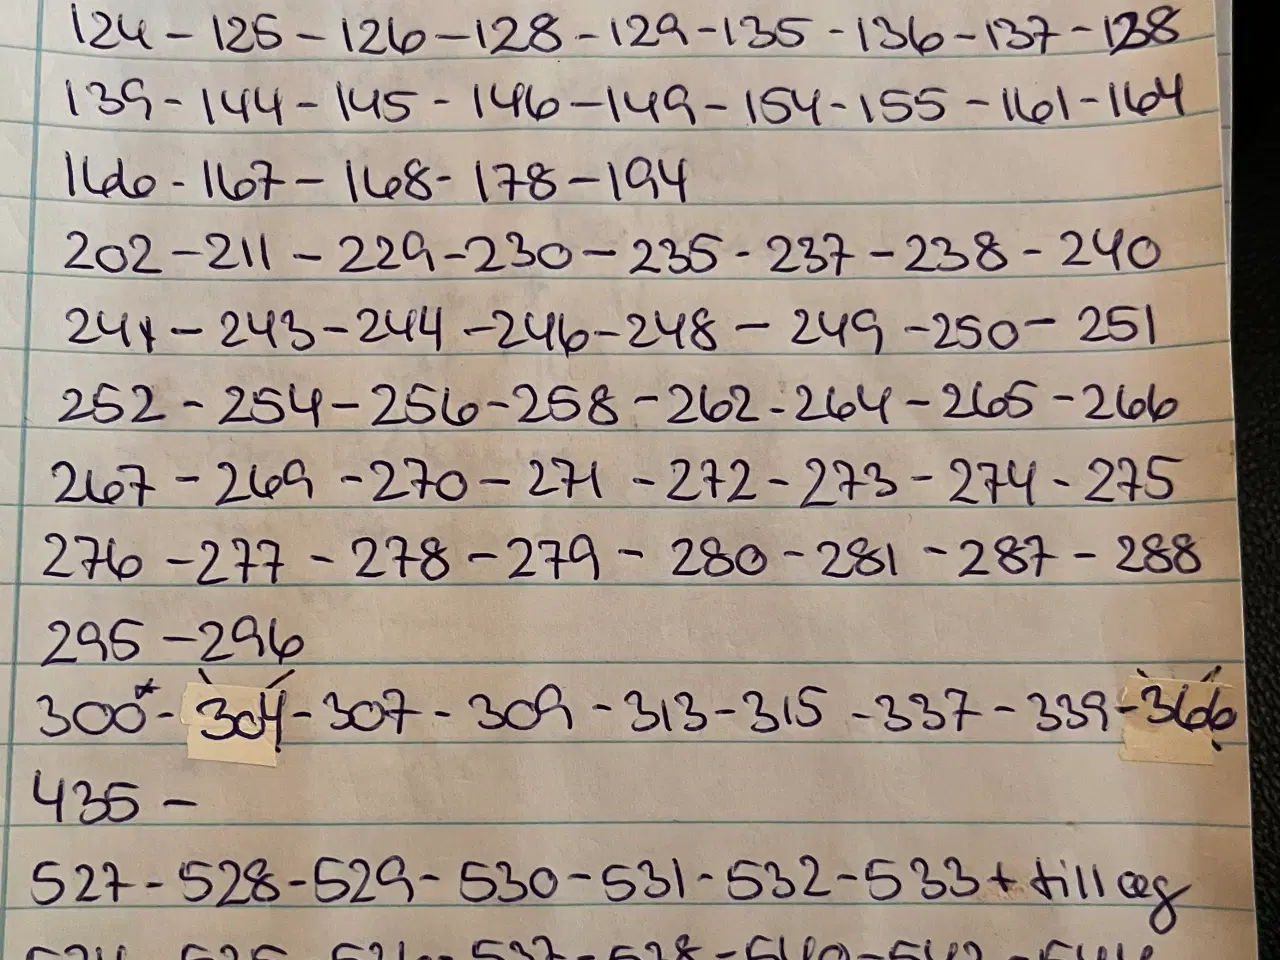 124 - 125 - 126 - 128 - 129 - 135 - 136 - 137 - 138
139 - 144 - 145 - 146 - 149 - 154 - 155 - 161 - 164
166 - 167 - 168 - 178 - 194
202 - 211 - 229 - 230 - 235 - 237 - 238 - 240
241 - 243 - 244 - 246 - 248 - 249 - 250 - 251
252 - 254 - 256 - 258 - 262 - 264 - 265 - 266
267 - 269 - 270 - 271 - 272 - 273 - 274 - 275
276 - 277 - 278 - 279 - 280 - 281 - 287 - 288
295 - 296
300* - 304 - 307 - 309 - 313 - 315 - 337 - 339 - 366
435 -
527 - 528 - 529 - 530 - 531 - 532 - 533 + tillæg